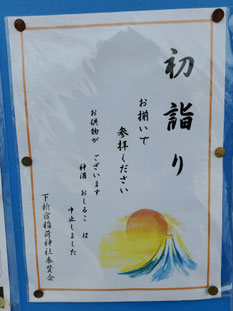 初詣り
お揃いで
参拝ください
お供物が ございます
神酒 おしるこ は
中止しました
下新宿稲荷神社奉賛会